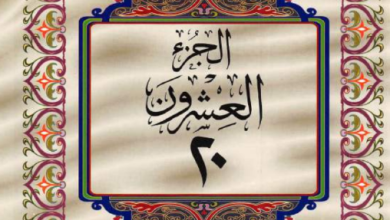 الجزء
العشرون
٢٠